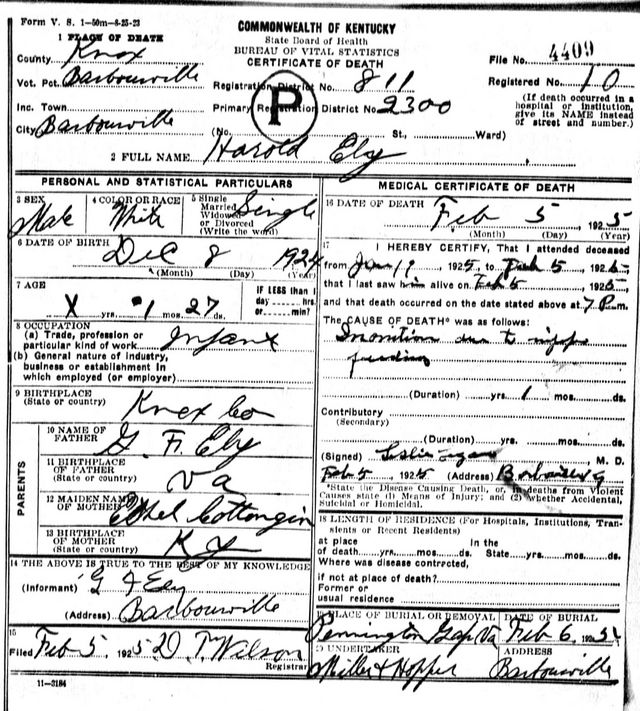 Form V. S. 1—50m—8-25-23
COMMONWEALTH OF KENTUCKY
State Board of Health
BUREAU OF VITAL STATISTICS
CERTIFICATE OF DEATH
1 PLACE OF DEATH
County Knox
Vot. Pct. Barbourville
Inc. Town
City Barbourville
Registration District No. 811
Primary Registration District No. 2300
P
(No. St., Ward)
File No. 4409
Registered No. 10
(If death occurred in a
hospital or institution,
give its NAME instead
of street and number.)
2 FULL NAME Harold Ely
PERSONAL AND STATISTICAL PARTICULARS
3 SEX
Male
4 COLOR OR RACE
White
5 Single
Married
Widowed
or Divorced
(Write the word)
Single
6 DATE OF BIRTH
Dec 8 1924
(Month) (Day) (Year)
7 AGE
X yrs. 1 mos. 27 ds.
IF LESS than 1
day hrs.
or min?
8 OCCUPATION
(a) Trade, profession or
particular kind of work Infant
(b) General nature of industry,
business or establishment in
which employed (or employer)
9 BIRTHPLACE
(State or country)
Knox Co
PARENTS
10 NAME OF
FATHER
G. F. Ely
11 BIRTHPLACE
OF FATHER
(State or country)
Va
12 MAIDEN NAME
OF MOTHER
Ethel Cottongin
13 BIRTHPLACE
OF MOTHER
(State or country)
Ky
14 THE ABOVE IS TRUE TO THE BEST OF MY KNOWLEDGE
(Informant) G F Ely
(Address) Barbourville
15
Filed Feb 5, 1925 Wilson
Registrar
11—3184
MEDICAL CERTIFICATE OF DEATH
16 DATE OF DEATH
Feb 5 1925
(Month) (Day) (Year)
17 I HEREBY CERTIFY, That I attended deceased
from Jan 1925, to Feb 5 1925
that I last saw him alive on Feb 5 1925
and that death occurred on the date stated above at 7 P.m.
The CAUSE OF DEATH* was as follows:
Inanition due to
feeding
(Duration) yrs. 1 mos. ds.
Contributory
(Secondary)
(Duration) yrs. mos. ds.
(Signed) Leslie Logan M. D.
Feb 5 1925 (Address)
*State the Disease Causing Death, or, in deaths from Violent
Causes state (1) Means of Injury; and (2) whether Accidental,
Suicidal or Homicidal.
18 LENGTH OF RESIDENCE (For Hospitals, Institutions, Tran-
sients or Recent Residents)
at place In the
of death yrs. mos. ds. State yrs. mos. ds.
Where was disease contracted,
if not at place of death?
Former or
usual residence
19 PLACE OF BURIAL OR REMOVAL
Pennington Gap Va
DATE OF BURIAL
Feb 6, 1925
20 UNDERTAKER
Miller & Hopper
ADDRESS
Barbourville